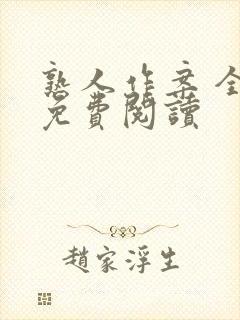 熟人作案全
免費閱讀
趙家浮生